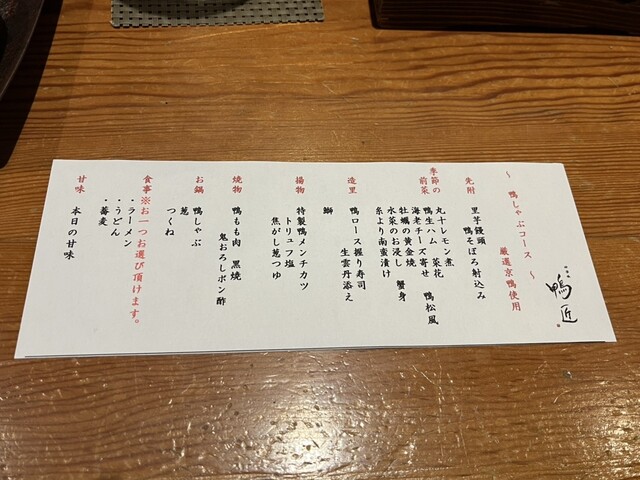 鴨匠
～ 鴨しゃぶコース ～
厳選京鴨使用
先附
里芋饅頭
鴨そぼろ射込み
季節の
前菜
丸十レモン煮
鴨生ハム 菜花
海老チーズ寄せ 鴨松風
牡蠣の黄金焼 蟹身
水菜のお浸し
糸より南蛮漬け
造里
鴨ロース握り寿司
生雲丹添え
鰤
揚物
特製鴨メンチカツ
トリュフ塩
焦がし葱つゆ
焼物
鴨もも肉 黒焼
鬼おろしポン酢
お鍋
鴨しゃぶ
葱
つくね
食事※お一つお選び頂けます。
・ラーメン
・うどん
・蕎麦
甘味
本日の甘味